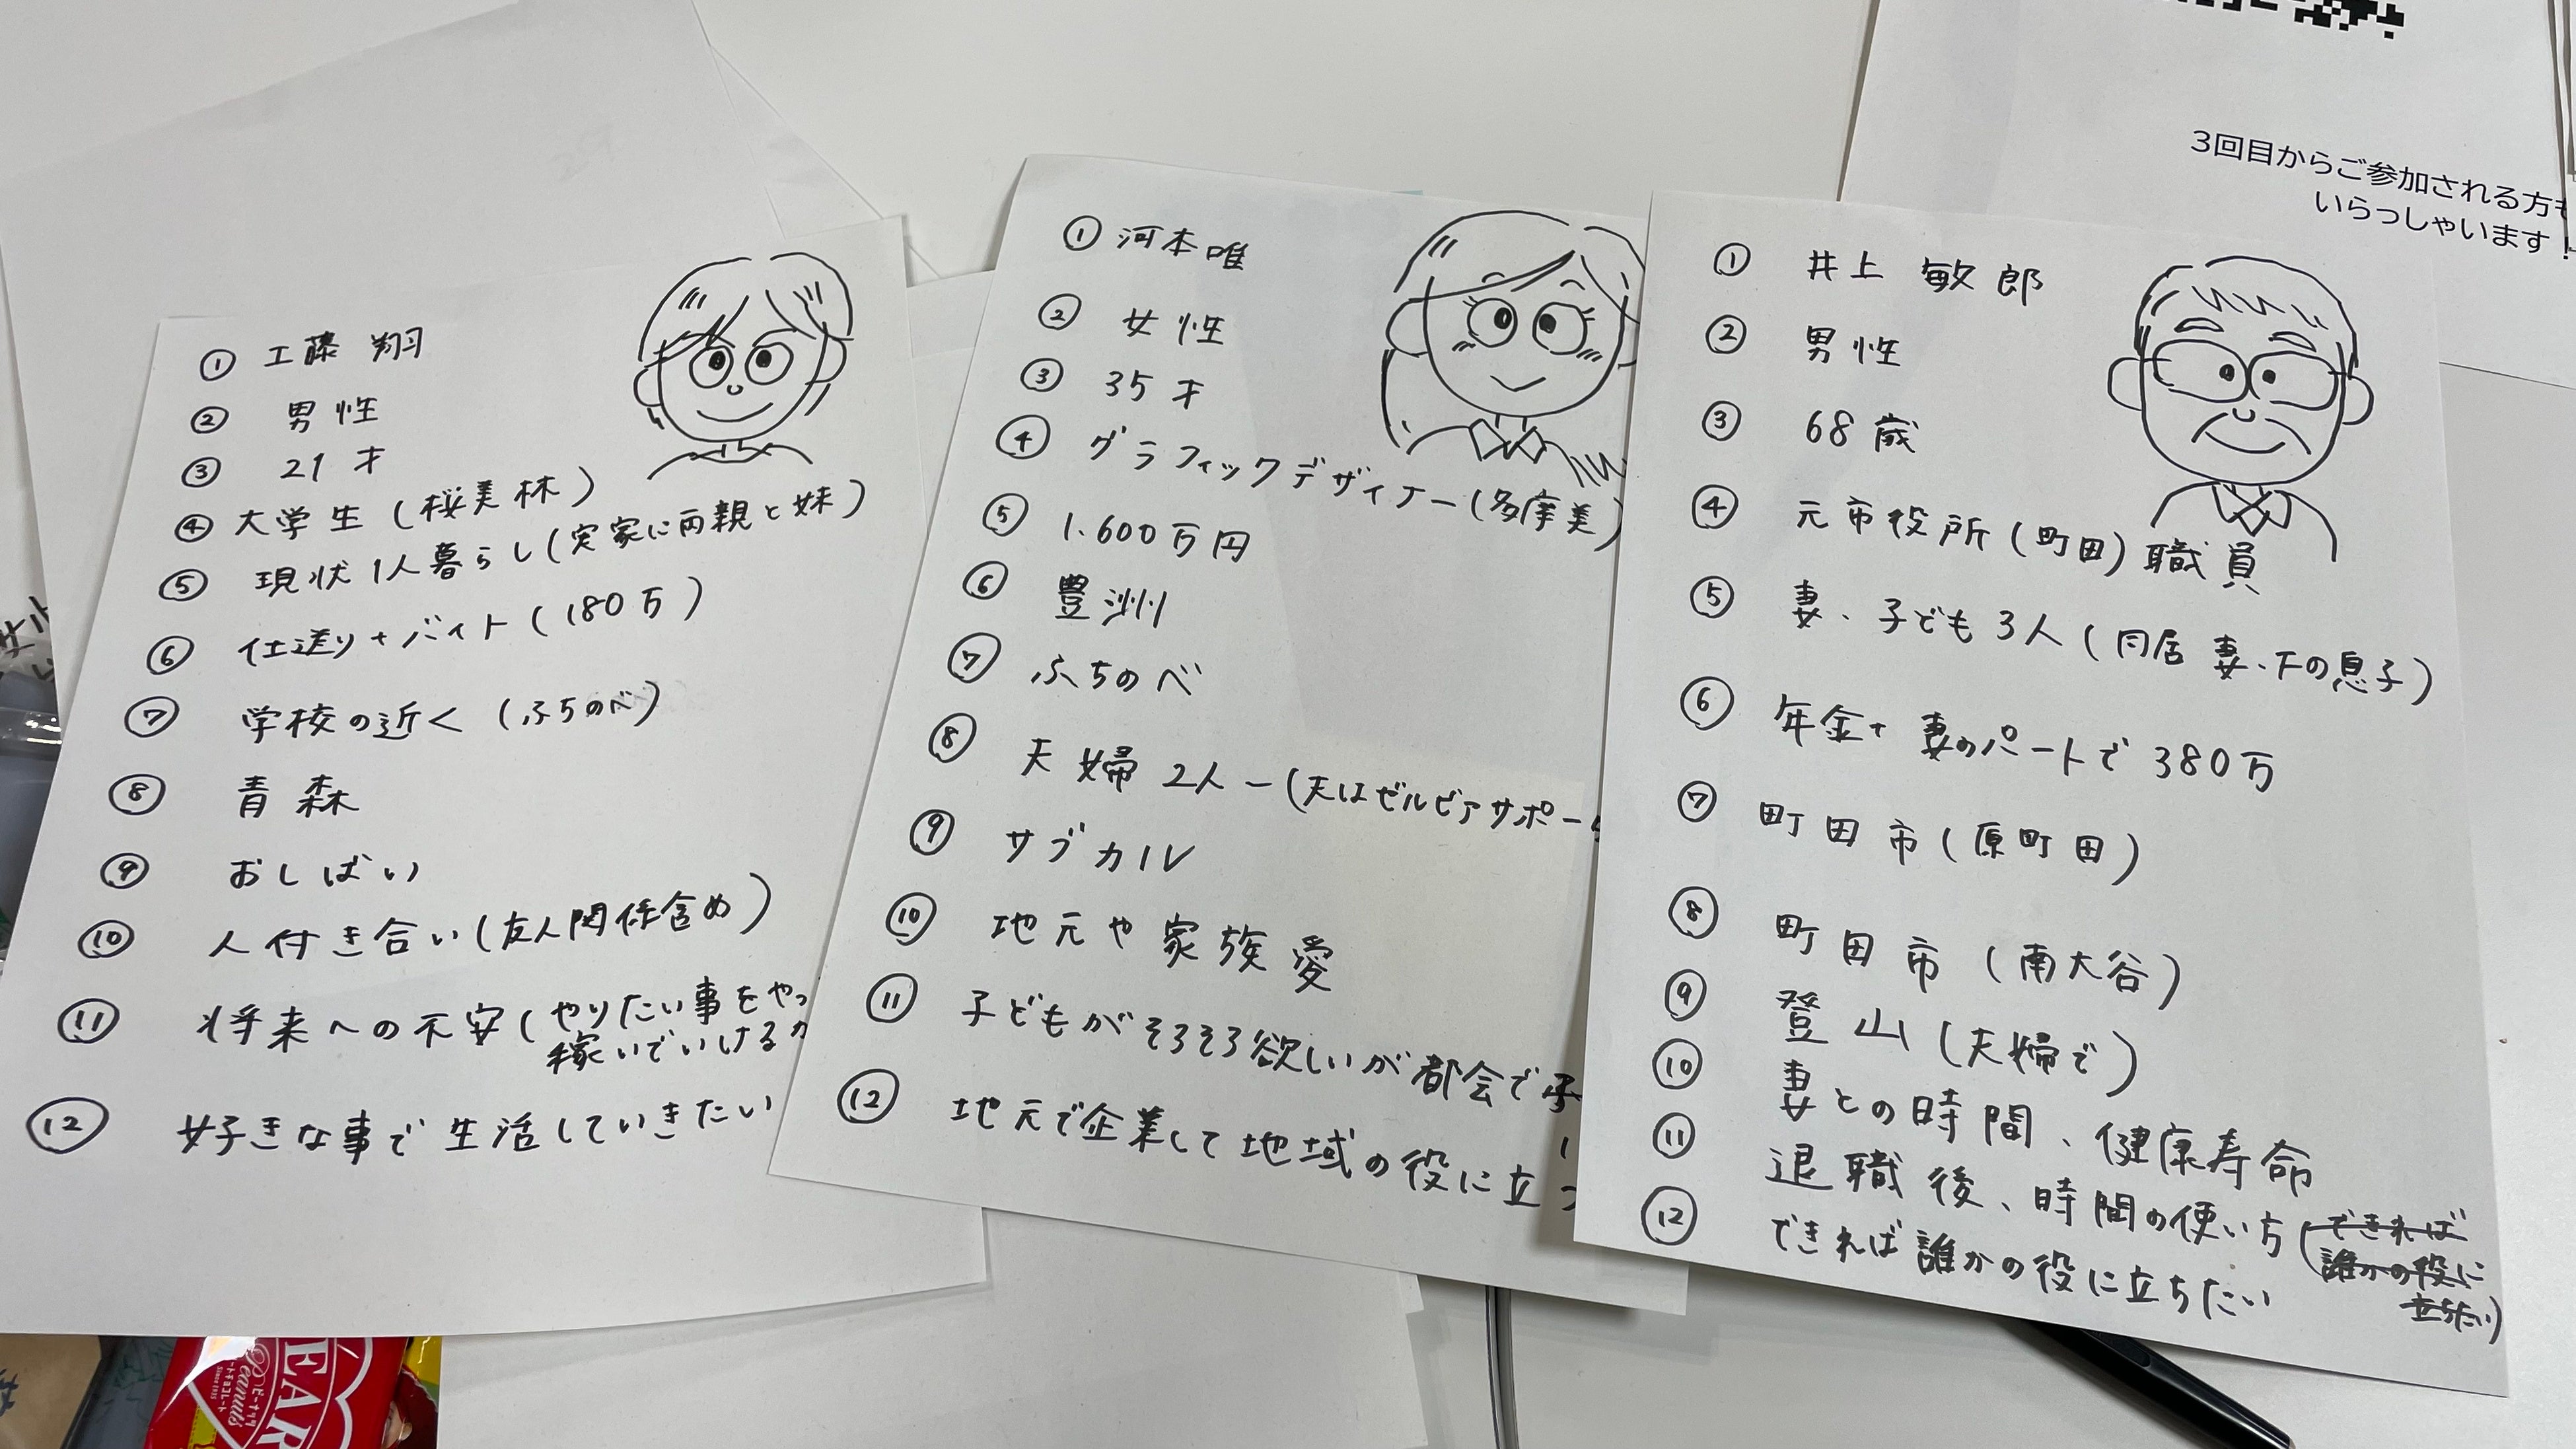 ① 工藤 翔
② 男性
③ 21才
④ 大学生 (桜美林)
⑤ 現状1人暮らし(実家に両親と妹)
⑥ 仕送り+バイト(180万)
⑦ 学校の近く (ふちのべ)
⑧ 青森
⑨ おしばい
⑩ 人付き合い(友人関係含め)
⑪ 将来への不安(やりたい事をやっ
稼いでいける
⑫ 好きな事で生活していきたい
① 河本唯
② 女性
③ 35才
④ グラフィックデザイナー(多摩美)
⑤ 1.600万円
⑥ 豊洲
⑦ ふちのべ
⑧ 夫婦2人ー(夫はゼルビアサポー
⑨ サブカル
⑩ 地元や家族愛
⑪ 子どもがそろそろ欲しいが都会で
⑫ 地元で企業して地域の役に立つ
① 井上 敏郎
② 男性
③ 68歳
④ 元市役所(町田)職員
⑤ 妻、子ども3人(同居 妻・下の息子)
⑥ 年金+妻のパートで380万
⑦ 町田市(原町田)
⑧ 町田市(南大谷)
⑨ 登山(夫婦で)
⑩ 妻との時間、健康寿命
⑪ 退職後、時間の使い方(できれば
誰かの役に
立ちたい)
⑫ できれば誰かの役に立ちたい
3回目からご参加される方も
いらっしゃいます!
EAR
Peanuts
ピーナッツ